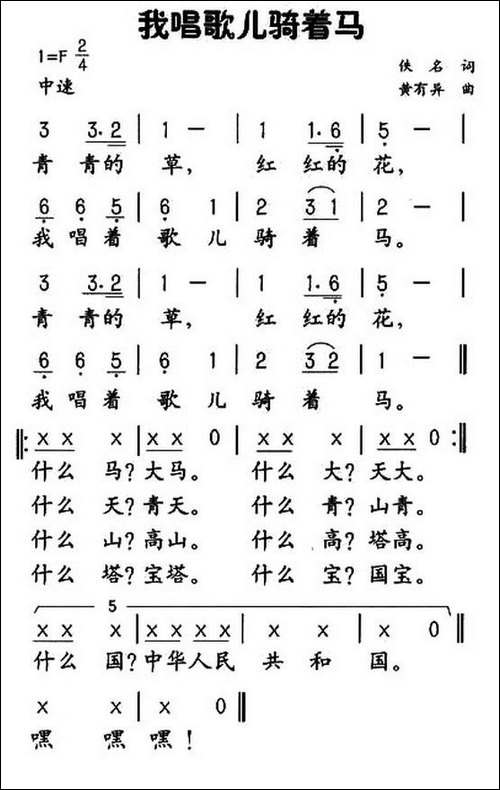 我唱歌儿骑着马
1=F 2/4
中速
佚名 词
黄有异 曲
3 3.2 | 1 — | 1 1.6 | 5 — |
青 青的 草, 红 红的 花,
6 6 5 | 6 1 | 2 3 1 | 2 — |
我 唱 着 歌 儿 骑 着 马。
3 3.2 | 1 — | 1 1.6 | 5 — |
青 青的 草, 红 红的 花,
6 6 5 | 6 1 | 2 3 2 | 1 — ‖
我 唱 着 歌 儿 骑 着 马。
‖: X X X | X X 0 | X X X | X X 0 :‖
什么 马? 大马。 什么 大? 天大。
什么 天? 青天。 什么 青? 山青。
什么 山? 高山。 什么 高? 塔高。
什么 塔? 宝塔。 什么 宝? 国宝。
5
X X X | X X X X | X X | X 0 ‖
什么 国? 中华人民 共 和 国。
X X | X 0 ‖
嘿 嘿 嘿!